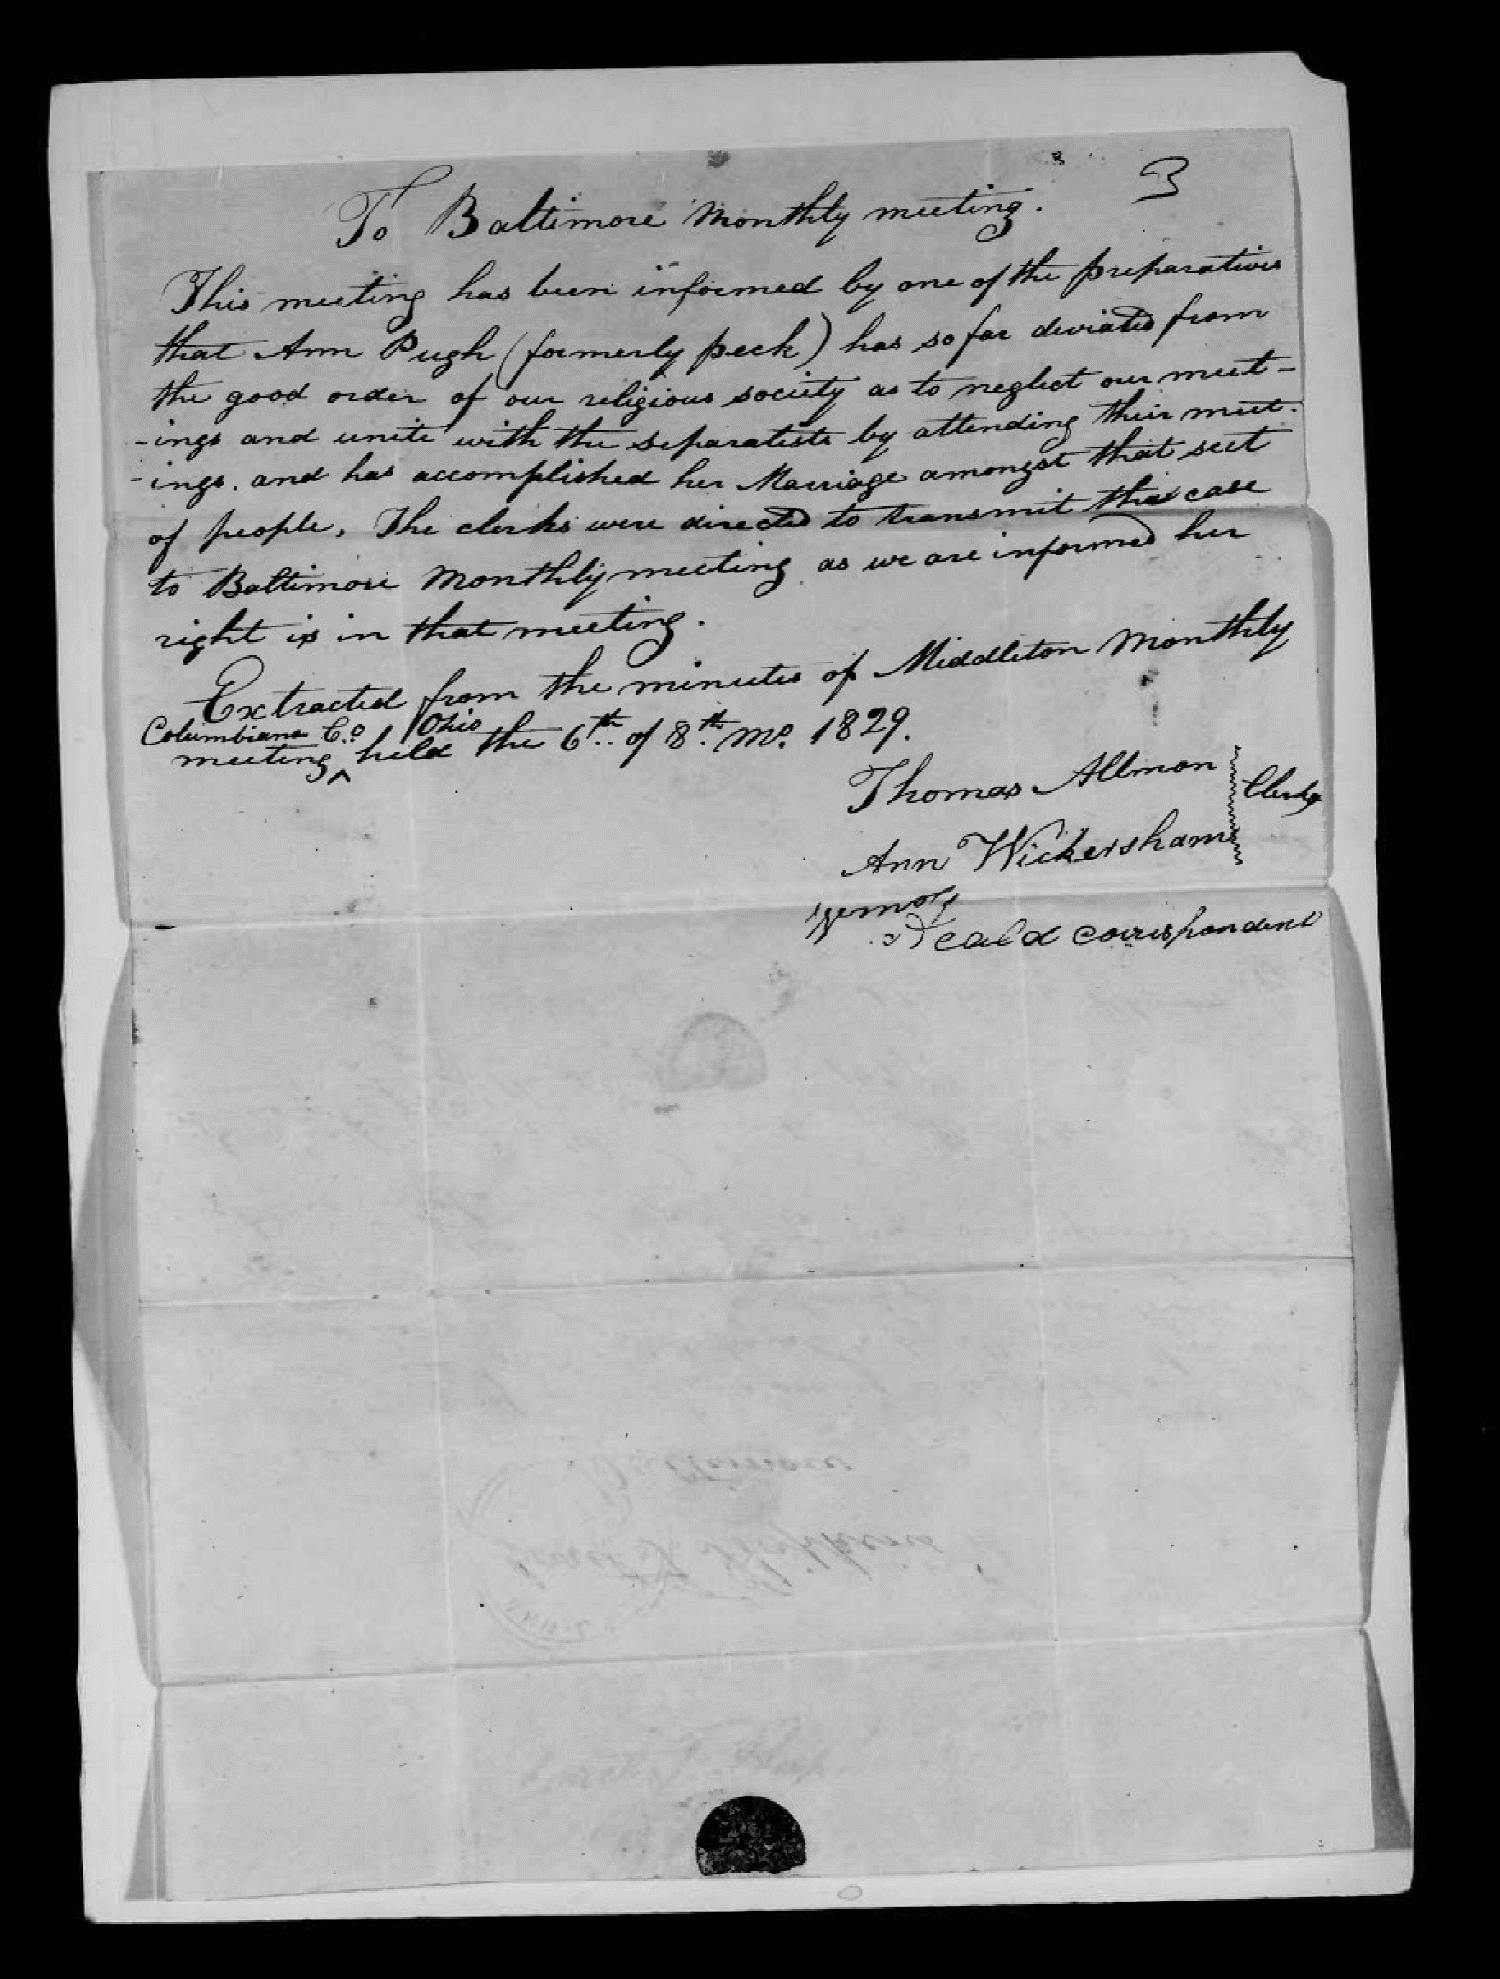 3
To Baltimore Monthly meeting.
This meeting has been informed by one of the preparatives
that Ann Pugh (formerly peck) has so far deviated from
the good order of our religious society as to neglect our meet-
-ings and unite with the separatists by attending their meet-
-ings. and has accomplished her Marriage amongst that sect
of people, The clerks were directed to transmit this case
to Baltimore Monthly meeting as we are informed her
right is in that meeting.
Extracted from the minutes of Middleton Monthly
Columbiana Co. Ohio
meeting ^ held the 6th of 8th Mo. 1829.
Thomas Allmon
Clerks
Ann Wickersham
Heald correspondent
Baltimore